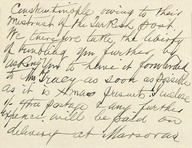 Constantinople owing to their
mistrust of the Turkish post.
We therefore take the liberty
of troubling you further, by
asking you to have it forwarded
to Mr Tracy as soon as possible
as it is Xmas present. I enclose
postage & any further
expense will be paid on
delivery at Marsovan